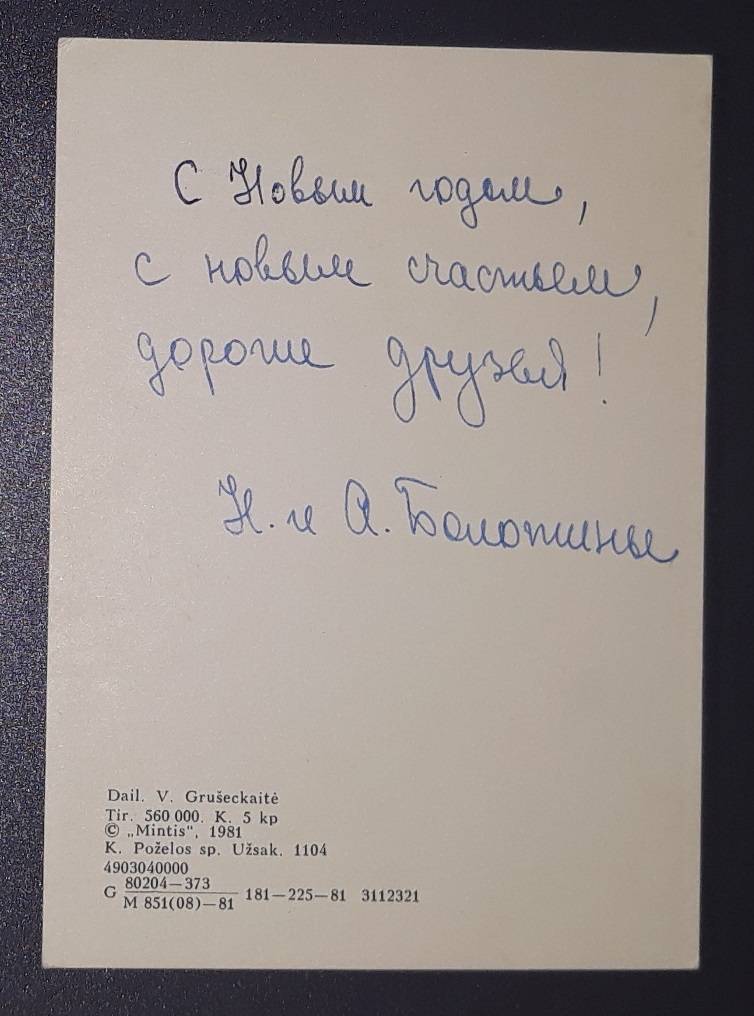 С Новым годом,
с новым счастьем,
дорогие друзья!
Н. и А. Болотины
Dail. V. Grušeckaitė
Tir. 560 000. K. 5 kp
© „Mintis", 1981
K. Poželos sp. Užsak. 1104
4903040000
G 80204—373 181—225—81 3112321
M 851(08)—81